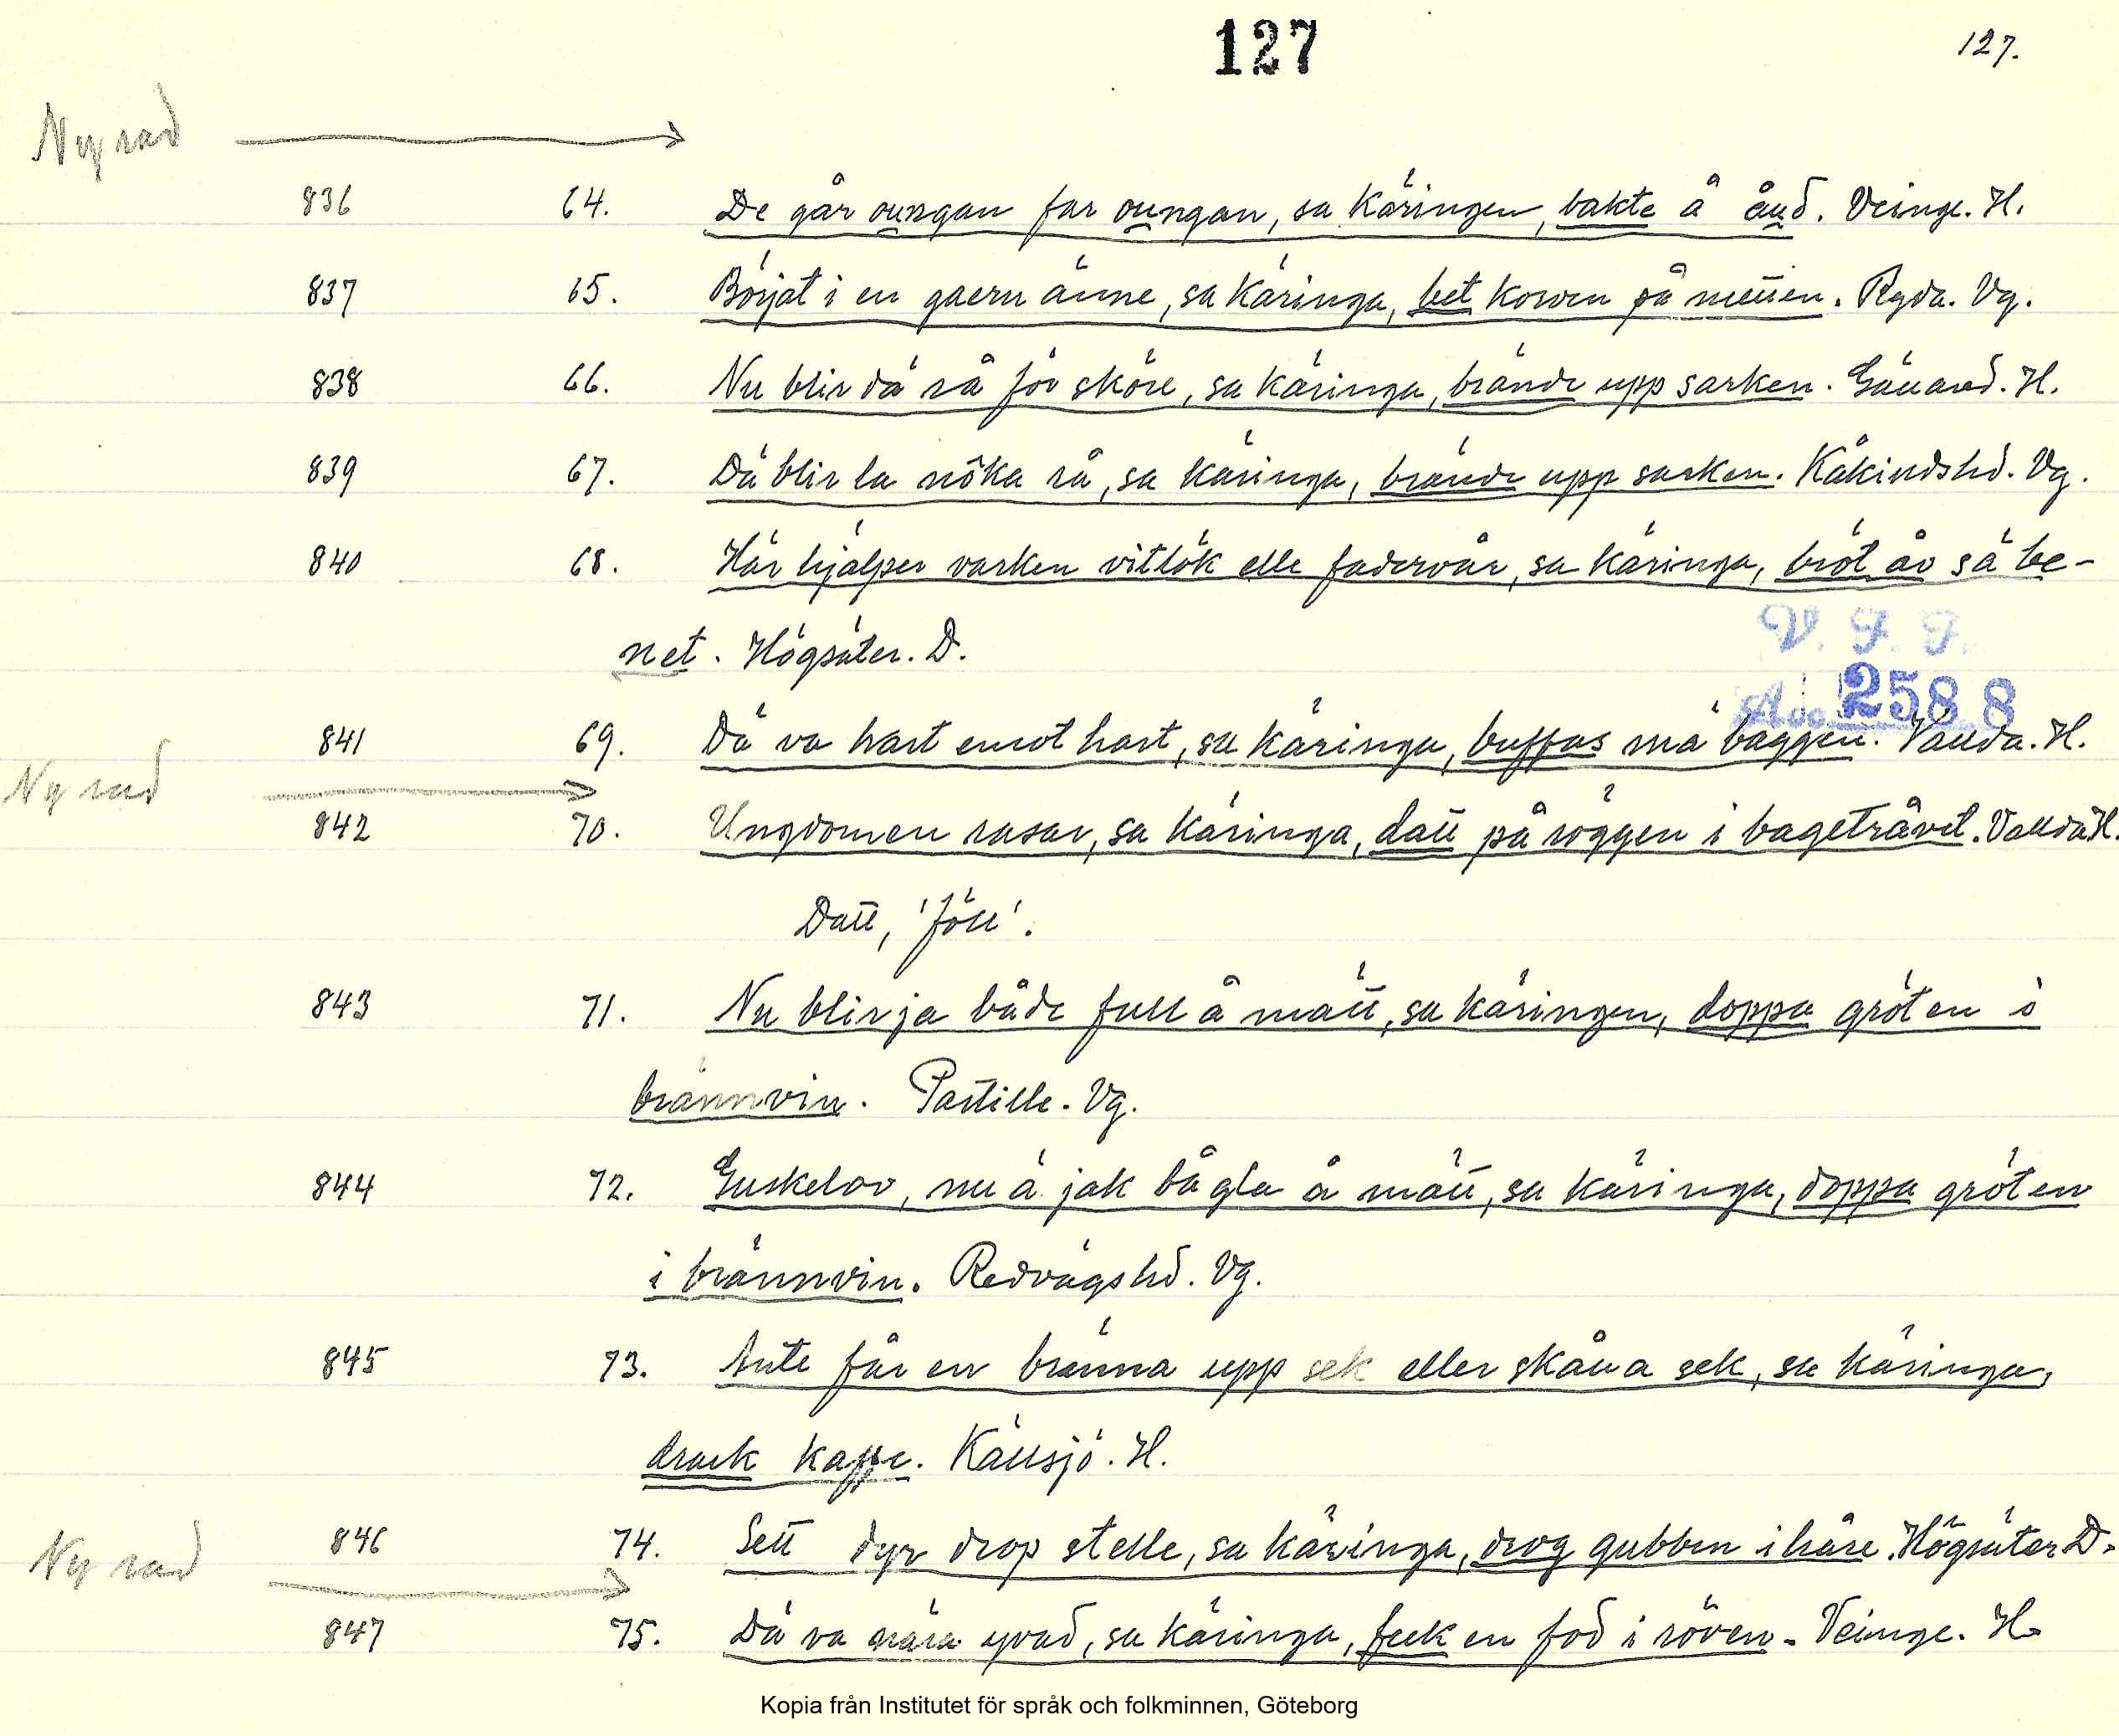 127
127.
Ny rad
836 64. De går oungan far oungan, sa käringen, bakte å åud. Veinge. H.
837 65. Börjat i en gaern änne, sa käringa, bet kowen på mellen. Ryda. Vg.
838 66. Nu blir dä rå för sköre, sa käringa, brände upp sarken. Gällared. H.
839 67. Dä blir la nöka rå, sa käringa, brände upp sarken. Kåkindshd. Vg.
840 68. Här hjälper varken vitlök elle fadervår, sa käringa, bröt åv sä be-
net. Högsäter. D.
V. F. F.
Acc. 2588
841 69. Dä va hart emot hart, sa käringa, buffas mä baggen. Vallda. H.
Ny rad
842 70. Ungdomen rasar, sa käringa, datt på röggen i bagetråvet. Vallda H.
Datt, 'föll'.
843 71. Nu blir ja både full å mätt, sa käringen, doppa gröten i
brännvin. Partille. Vg.
844 72. Guskelov, nu ä jak bå gla å mätt, sa käringa, doppa gröten
i brännvin. Redvägshd. Vg.
845 73. Ante får en bränna upp sek eller skålla sek, sa käringa,
drack kaffe. Källsjö. H.
Ny rad
846 74. Sett dyr drop stelle, sa käringa, drog gubben i håre. Högsäter D.
847 75. Dä va nära yvad, sa käringa, feck en fod i röven. Veinge. H.
Kopia från Institutet för språk och folkminnen, Göteborg